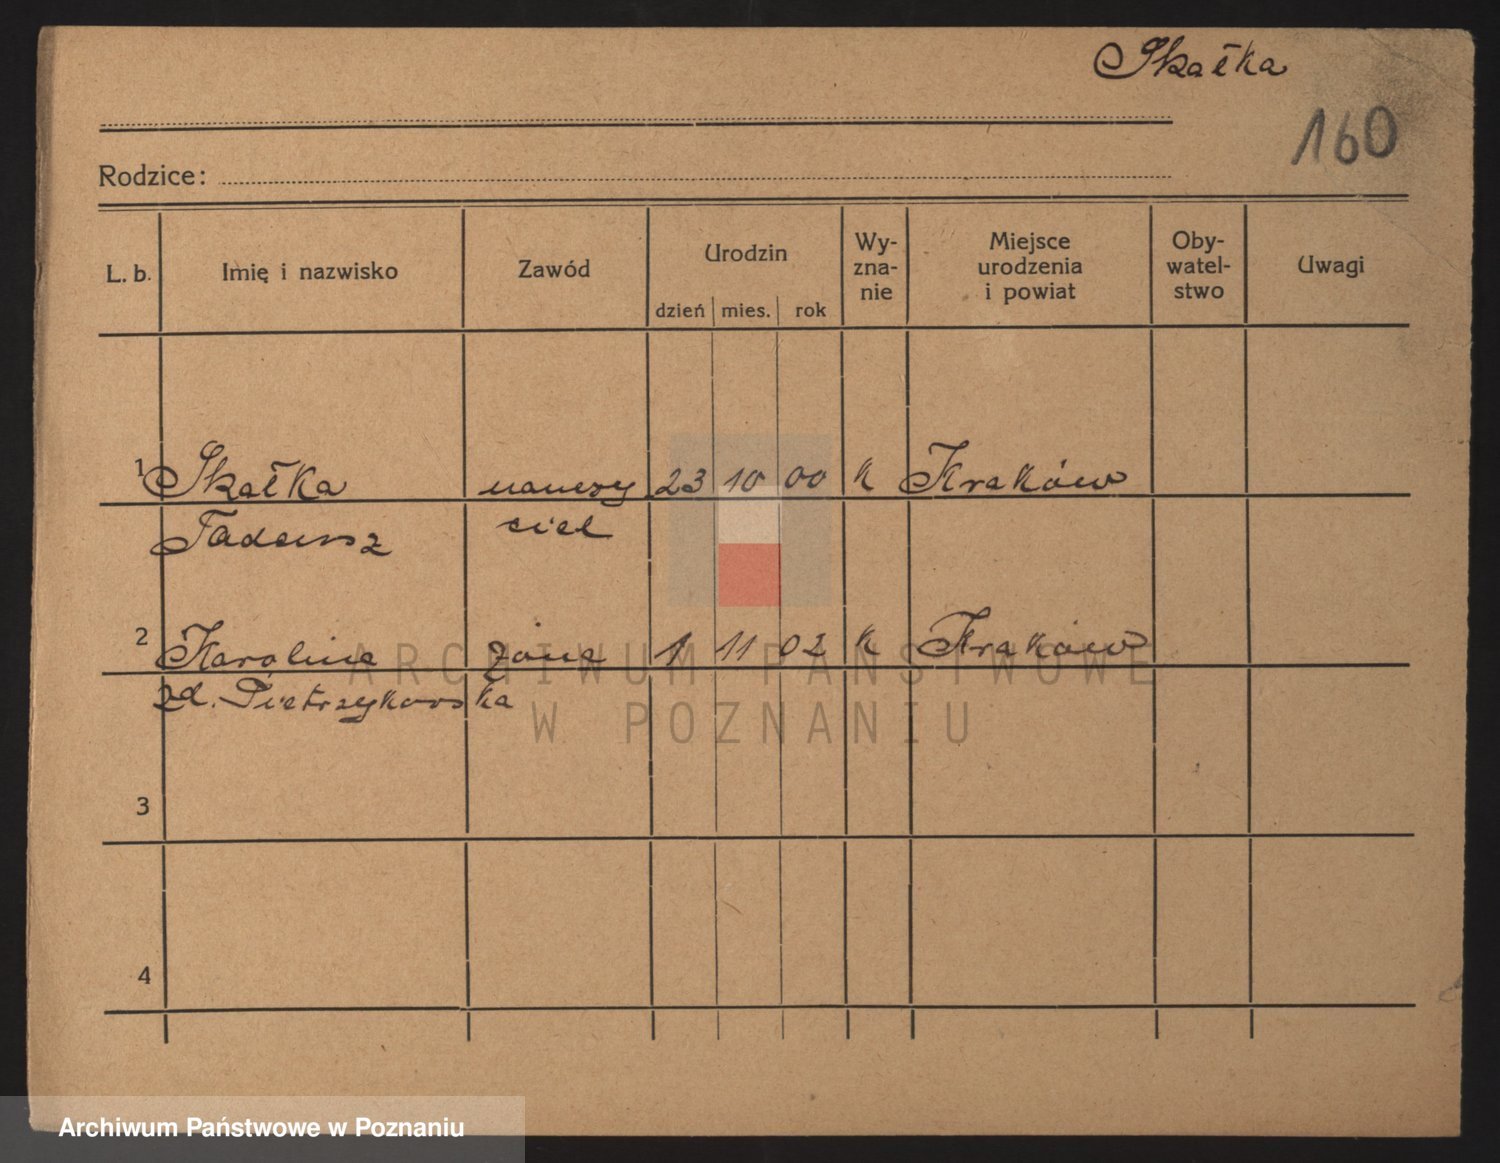 Skałka
160
Rodzice:
L. b. Imię i nazwisko Zawód Urodzin dzień mies. rok Wy-zna-nie Miejsce urodzenia i powiat Oby-watel-stwo Uwagi
1 Skałka nauczy 23 10 00 k Kraków
Tadeusz ciel
2 Karolina żona 1 11 02 k Kraków
zd. Pietrzykowska
ARCHIWUM PAŃSTWOWE
W POZNANIU
3
4
Archiwum Państwowe w Poznaniu